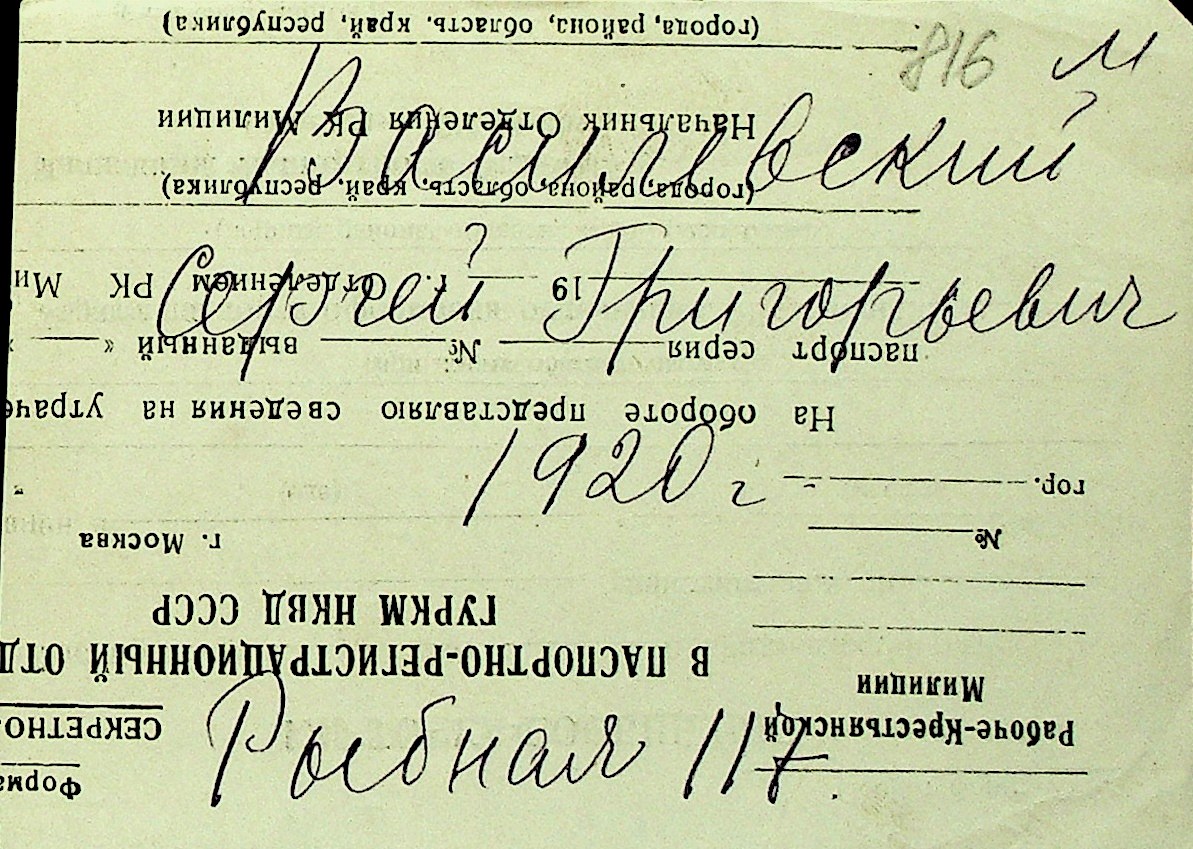 816 М
Василевский
Сергей Григорьевич
1920 г
Рыбная 117
Форма
Рабоче-Крестьянской СЕКРЕТНО.
Милиции
В ПАСПОРТНО-РЕГИСТРАЦИОННЫЙ ОТД
ГУРКМ НКВД СССР
№ г. Москва
гор.
На обороте представляю сведения на утраче
паспорт серия № выданный «
19 г. Отделением РК Ми
(города, района, область, край, республика)
Начальник Отделения РК Милиции
(города, района, область, край, республика)